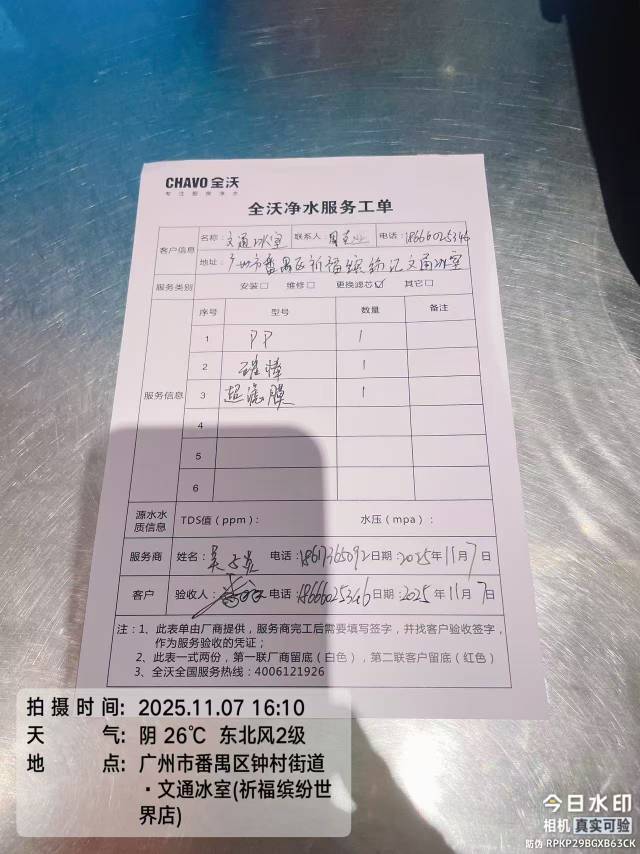 CHAVO 全沃
专注勤奋净水
全沃净水服务工单
客户信息
名称：文通冰室 联系人 电话：18666025346
地址：广州市番禺区祈福缤纷汇文通冰室
服务类别 安装□ 维修□ 更换滤芯☑ 其它□
服务信息
序号 型号 数量 备注
1 PP 1
2 碳棒 1
3 超滤膜 1
4
5
6
源水水质信息 TDS值（ppm）： 水压（mpa）：
服务商 姓名：吴 电话：18617365092 日期：2025年11月7日
客户 验收人： 电话：18666025346 日期：2025年11月7日
注：1、此表单由厂商提供，服务商完工后需要填写签字，并找客户验收签字，
作为服务验收的凭证；
2、此表一式两份，第一联厂商留底（白色），第二联客户留底（红色）
3、全沃全国服务热线：4006121926
拍摄时间：2025.11.07 16:10
天气：阴 26℃ 东北风2级
地点：广州市番禺区钟村街道
·文通冰室(祈福缤纷世
界店)
今日水印
相机 真实可验
防伪 RPKP29BGXB63CK